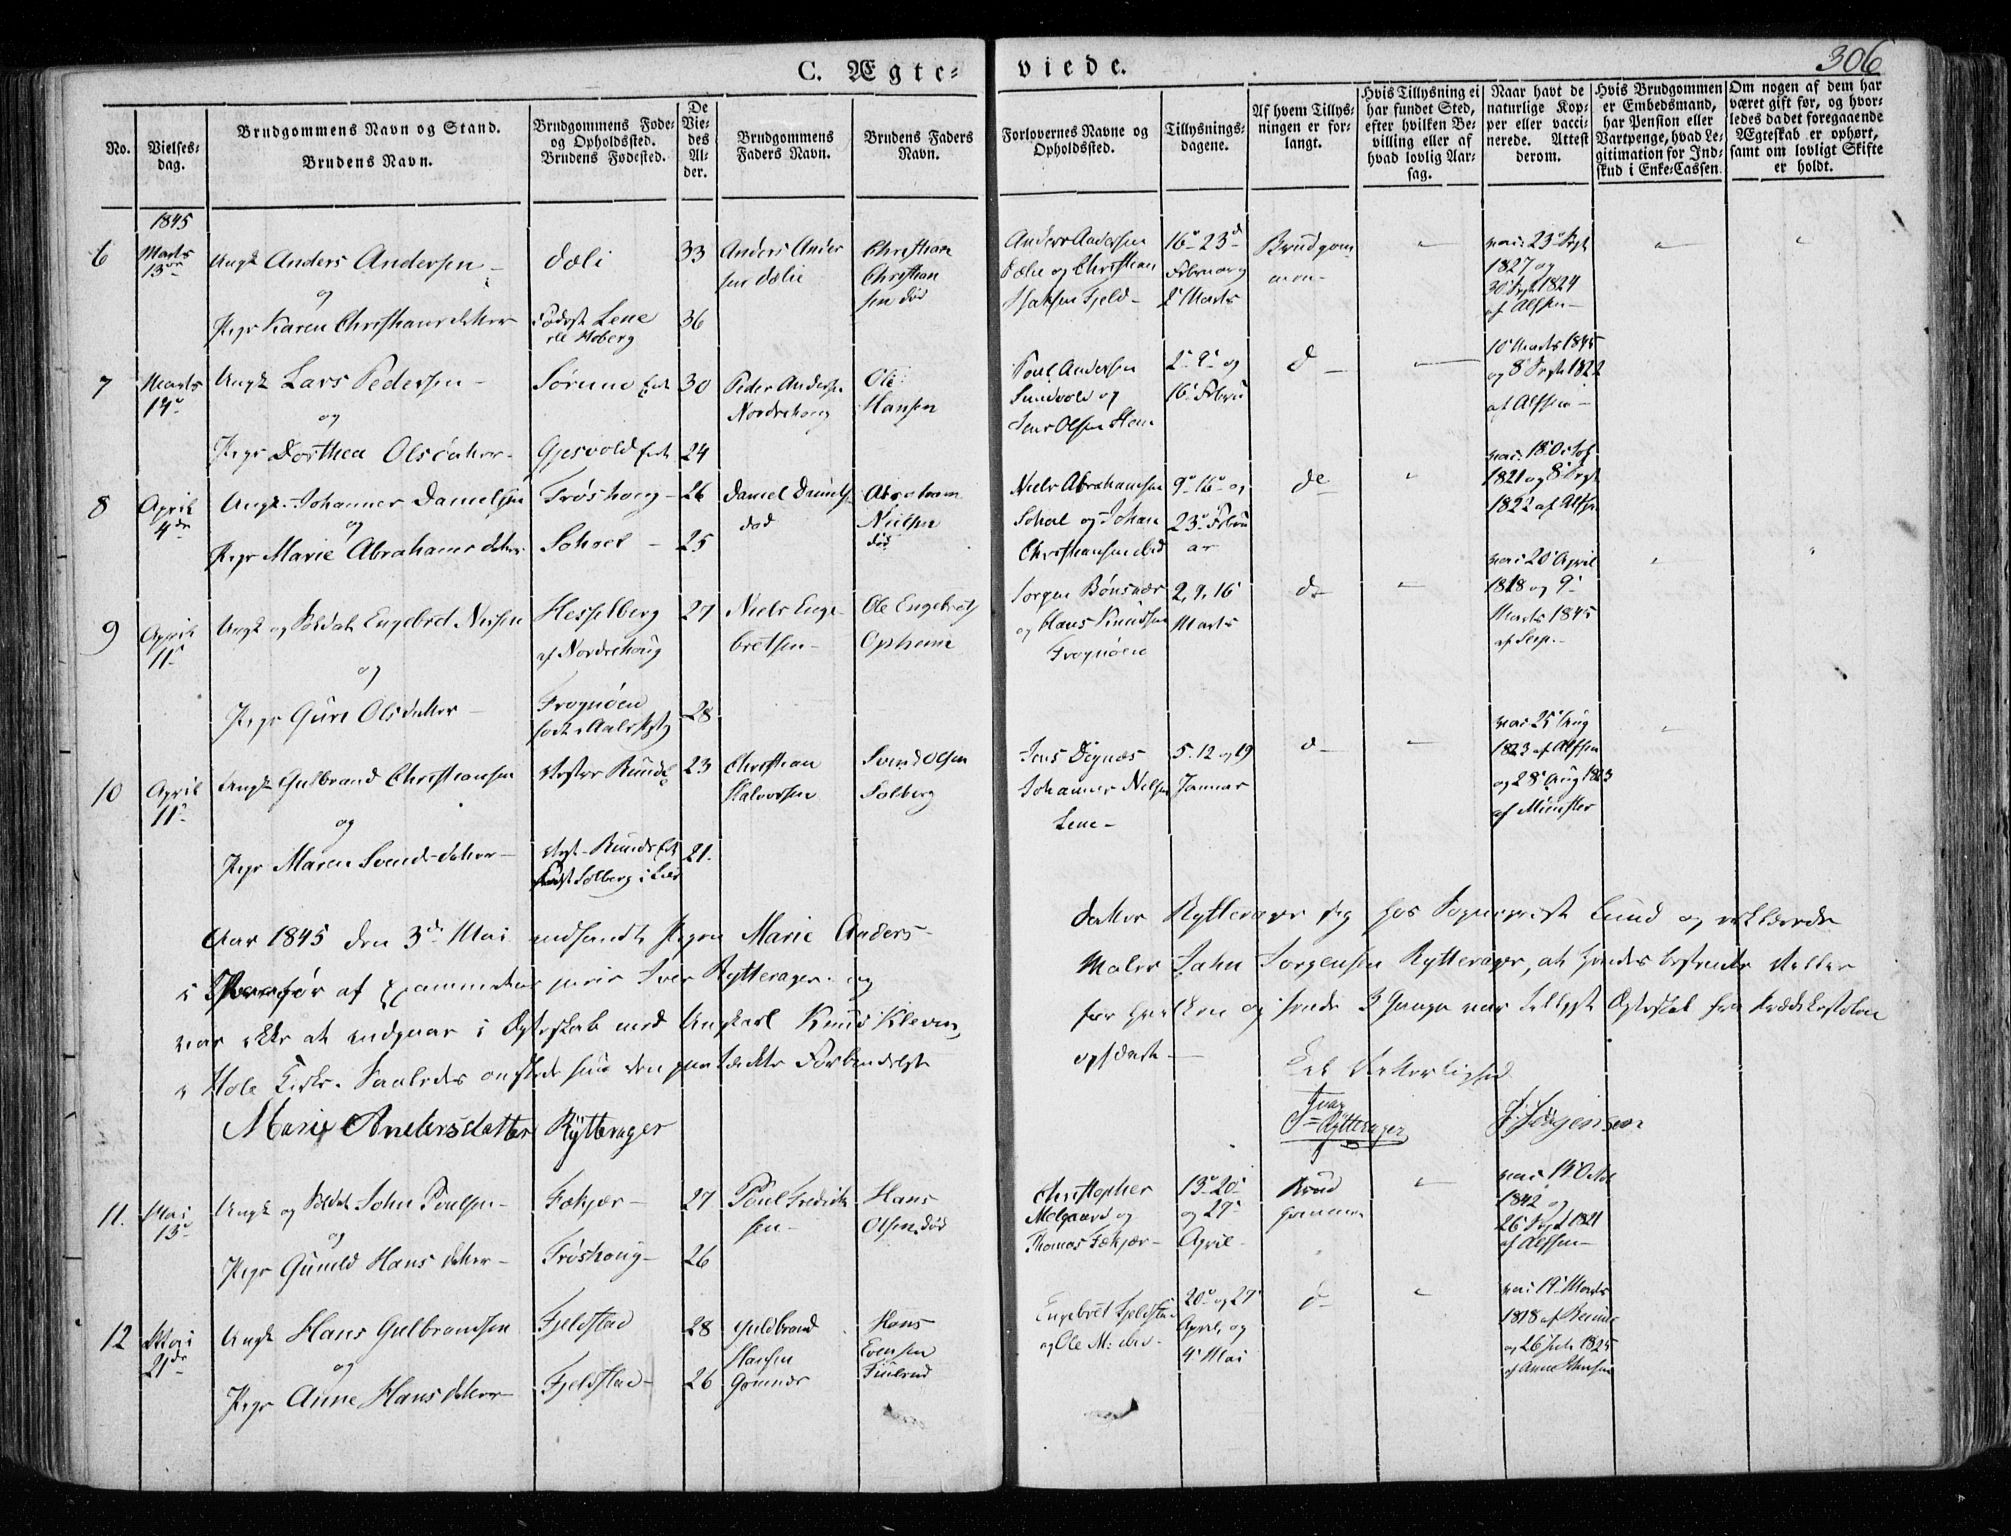 C. Ægte-
viede.
306
No.
Vielses-
dag.
Brudgommens Navn og Stand.
Brudens Navn.
Brudgommens Føde-
og Opholdssted.
Brudens Fødested.
De
Vie-
des
Al-
der.
Brudgommens
Faders Navn.
Brudens Faders
Navn.
Forlovernes Navne og
Opholdssted.
Tillysnings-
dagene.
Af hvem Tillys-
ningen er for-
langt.
Hvis Tillysning ei
har fundet Sted,
efter hvilken Be-
villing eller af
hvad lovlig Aar-
sag.
Naar havt de
naturlige Kop-
per eller vacci-
nerede. Attest
derom.
Hvis Brudgommen
er Embedsmand,
har Pension eller
Vartpenge, hvad Le-
gitimation for Ind-
skud i Enke-Cassen.
Om nogen af dem har
været gift før, og hvor-
ledes da det foregaaende
Ægteskab er ophørt,
samt om lovligt Skifte
er holdt.
1845
6 Marts 13de Ungk Anders Andersen
og
Pige Karen Christiansdatter
Dæli
Født Lene
Moberg
33
36
Anders Ander
sen Dælie
Christian
Christian
sen død
Anders Andersen
Dælie og Christian
Fjeld
16 23d
Februar og
2 Marts
Brudgom
men
vac. 23 Sept
1827 og
30 Sept 1824
af Alfsen
7 Marts 14 Ungk Lars Pedersen
og
Pige Dorthea Olsdatter
Sørum
Gjesvold
30
24
Peder Andersen
Nordrehoug
Ole
Hansen
Poul Andersen
Sundvold og
Jens Olsen Steen
2 9 og
16 Febru
do
10 Marts 1845
og 8 Sept 1822
af Alfsen
8 April 4de Ungk Johannes Danielsen
og
Pige Marie Abrahamsdatter
Frøshoug
Sohoel
26
25
Daniel Daniels
død
Abraham
Nielsen
død
Niels Abrahamsen
Sohol og Johan
Christiansen ibid
9 16 og
23 Febru
ar
do
vac. 18 Octob
1821 og 8 Sept
1822 af Alfsen
9 April 11 Ungk og Soldat Engebret Nielsen
og
Pige Guri Olsdatter
Hesselberg
af Nordrehoug
Frognøen
født i Aals Pgld
27
28
Niels Enge
bretsen
Ole Engebrets
Opheim
Jørgen Bønsnæs
og Hans Knudsen
Frognøen
2, 9, 16
Marts
do
vac. 20 April
1818 og 9
Marts 1845
10 April 11 Ungk Gulbrand Christiansen
og
Pige Maren Svendsdatter
Rund
Solberg i Lier
23
21
Christian
Halvorsen
Svend Olsen
Solberg
Jens Dignæs
Johannes Nielsen
Lene
5. 12 og 19
Januar
do
vac. 25 Aug
1823 af Alfsen
og 28 Aug 1823
af Münster
Aar 1845 den 3de Mai indfandt Pigen Marie Anders-
datter Rytterager sig hos Sogneprest Lund og erklærede
i Overvær af Iver Rytterager og
Maler John Jørgensen Rytterager, at hendes bestemte Villie
var ikke at indgaae i Ægteskab med Ungkarl Knud Kleven,
for hvilken og hende 3 Gange var tillyst Ægteskab fra Prædikestolen
i Hole Kirke. Saaledes ønskede hun den paatænkte Forbindelse
ophævet
Til Vitterlighed
Marie Andersdatter Rytterager
Ivar
Rytterager
J: Jørgensen
11. Mai 13 Ungk og Soldat John Poulsen
og
Pige Gunild Hansdatter
Fækjær
Frøshoug
27
26
Poul Fredrik
sen
Hans
Olsen død
Christopher
Melgaard og
Thomas Fækjær
13 20
og 27
April
Brud
gommen
vac. 11 Octob
1842 og
26 Sept 1821
af Alfsen
12 Mai 21de Ungk Hans Gulbrandsen
og
Pige Anne Hansdatter
Fjeldstad
Fjeldstad
28
26
Guldbrand
Hansen
Gomnæs
Hans
Evensen
Engebret Fjeldstad
og Ole M: ibid
20 og 27
April og
4 Mai
do
vac. 19 Marts
1818
og 26 Juli 1825
af Anne Johnsen